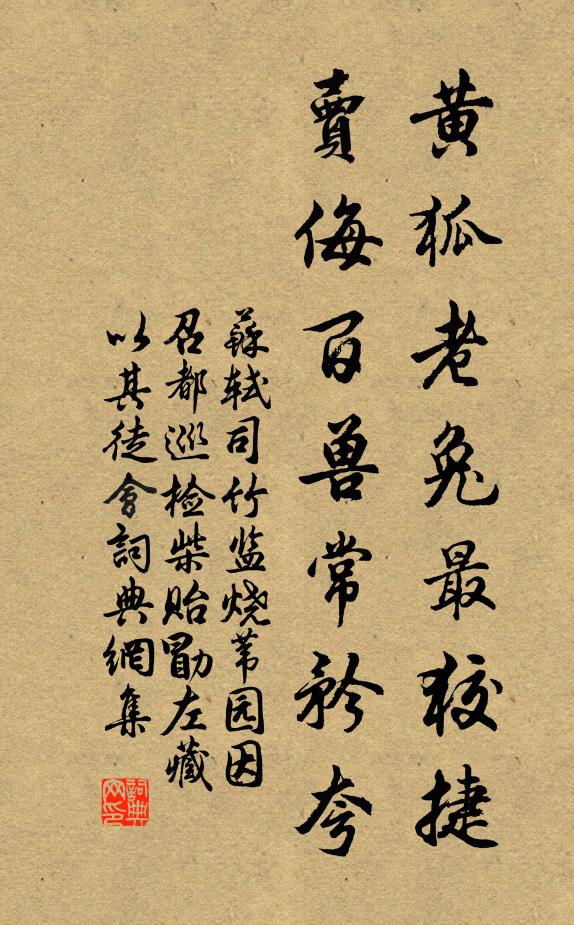 黄狐老兔最狡捷
賣侮百兽常矜夸
蘇轼司竹监烧苇园因
召都巡检柴贻勖左藏
以其徒會詞典網集
詞典网印